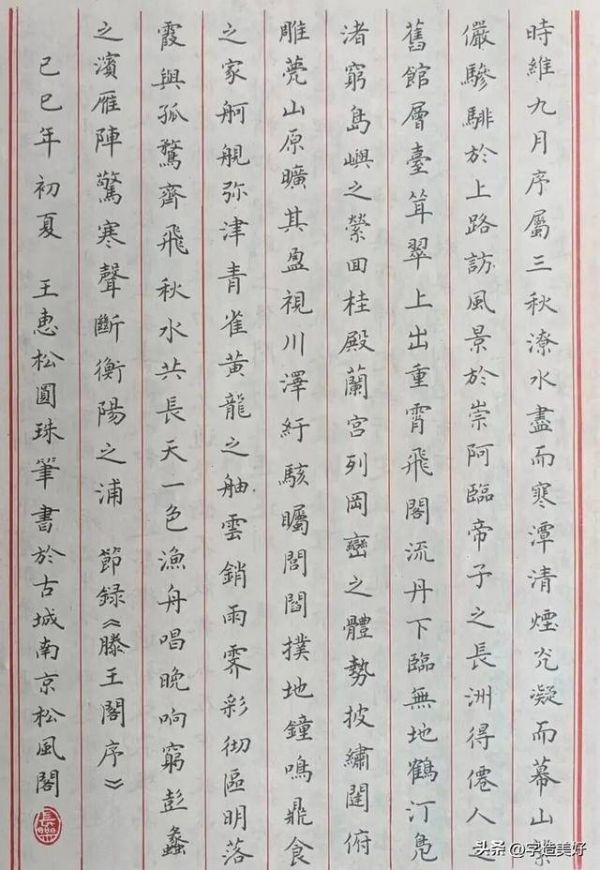 時維九月序屬三秋潦水盡而寒潭清煙炗凝而暮山紫
儼驂騑於上路訪風景於崇阿臨帝子之長洲得僊人之
舊館層臺耸翠上出重霄飛閣流丹下臨無地鶴汀鳧
渚窮島嶼之縈囬桂殿蘭宮列岡巒之體勢披繡闥俯
雕甍山原曠其盈視川澤紆駭矚閭閻撲地鐘鳴鼎食
之家舸舰弥津青雀黃龍之舳雲銷雨霽彩彻區明落
霞與孤鶩齊飛秋水共長天一色漁舟唱晚响窮彭蠡
之濱雁陣驚寒聲斷衡陽之浦 節録《滕王閣序》
己巳年初夏 王惠松圓珠筆書於古城南京松風閣
头条 @字造美好